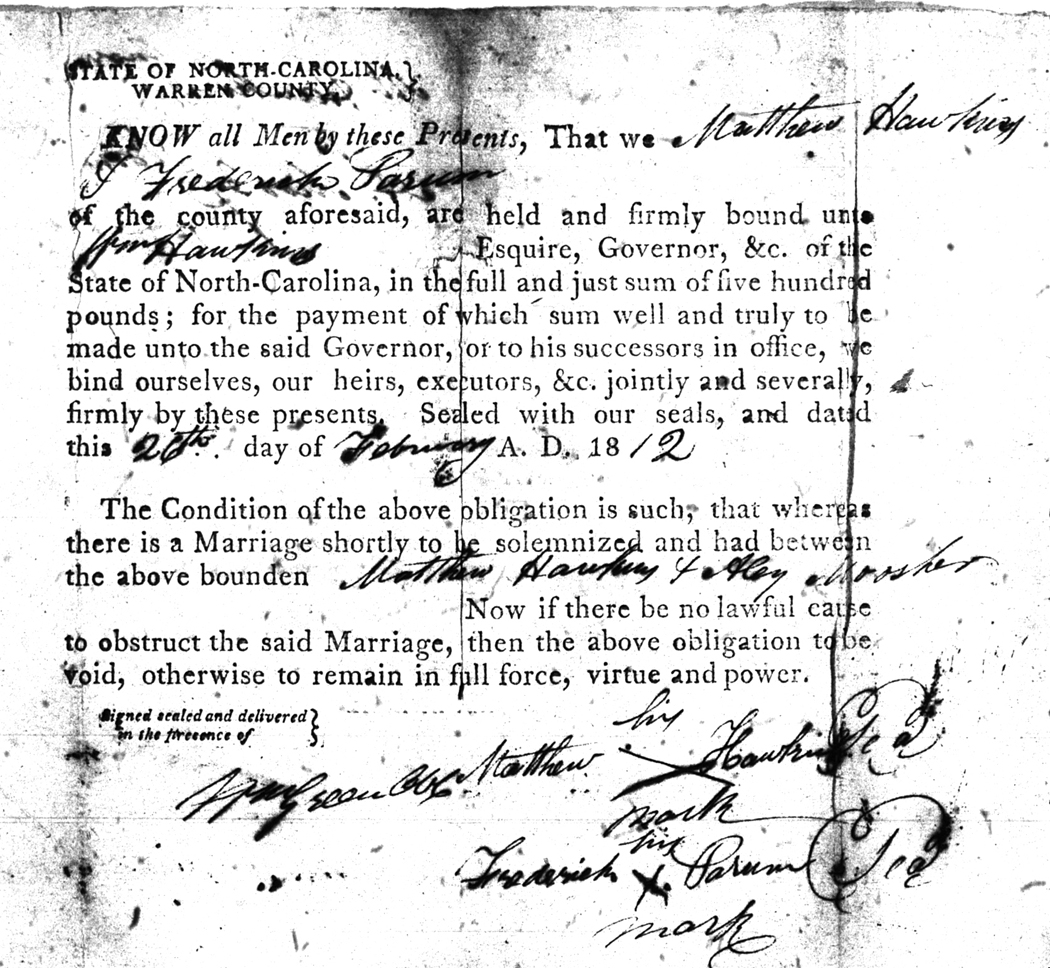 STATE OF NORTH-CAROLINA,
WARREN COUNTY.
KNOW all Men by these Presents, That we Matthew Hawkins
& Frederick Parum
of the county aforesaid, are held and firmly bound unto
Wm Hawkins Esquire, Governor, &c. of the
State of North-Carolina, in the full and just sum of five hundred
pounds; for the payment of which sum well and truly to be
made unto the said Governor, or to his successors in office, we
bind ourselves, our heirs, executors, &c. jointly and severally,
firmly by these presents. Sealed with our seals, and dated
this 26th. day of February A. D. 1812
The Condition of the above obligation is such, that whereas
there is a Marriage shortly to be solemnized and had between
the above bounden Matthew Hawkins & Aley Moosher
Now if there be no lawful cause
to obstruct the said Marriage, then the above obligation to be
void, otherwise to remain in full force, virtue and power.
Signed sealed and delivered
in the presence of
his
Matthew X Hawkins Seal
Wm Green
mark
his
Frederick X Parum Seal
mark